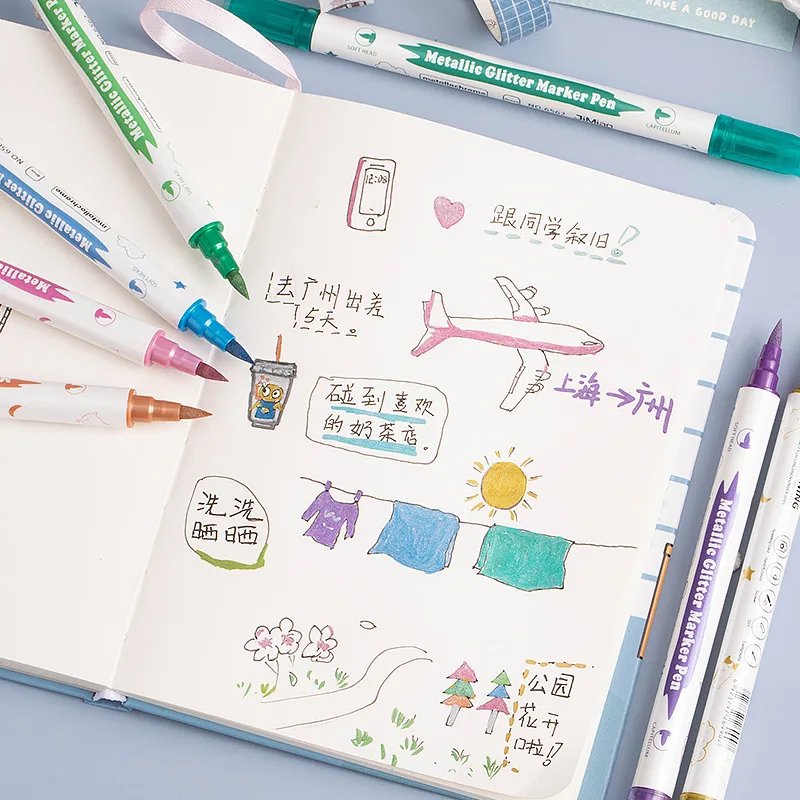 HAVE A GOOD DAY
SOFT HEAD
Metallic Glitter Marker Pen
metallochrome
NO.6563
JiMiao
CAPITELLUM
Metallic Glitter Marker Pen
SOFT HEAD
metallochrome
Metallic Glitter Marker Pen
SOFT HEAD
12:08
跟同学叙旧!
去广州出差
15天。
上海→广州
碰到喜欢
的奶茶店。
洗洗
晒晒
公园
花开
啦!
SOFT HEAD
Metallic Glitter Marker Pen
CAPITELLUM